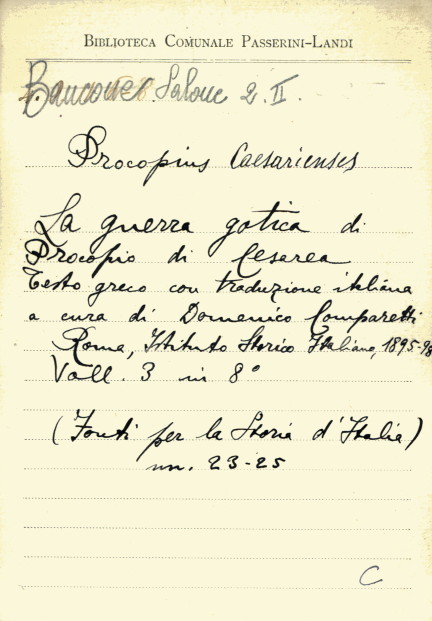 BIBLIOTECA COMUNALE PASSERINI-LANDI
Bancone Salone 2. II.
Procopius Caesarienses
La guerra gotica di
Procopio di Cesarea
Testo greco con traduzione italiana
a cura di Domenico Comparetti
Roma, Istituto Storico Italiano, 1895-98
Voll. 3 in 8°
(Fonti per la Storia d'Italia)
nn. 23-25
C